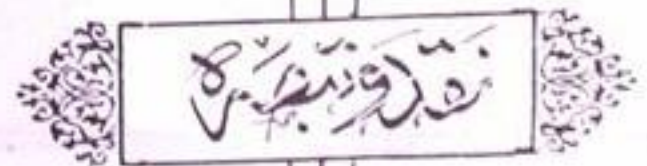 نقد و تبصرہ